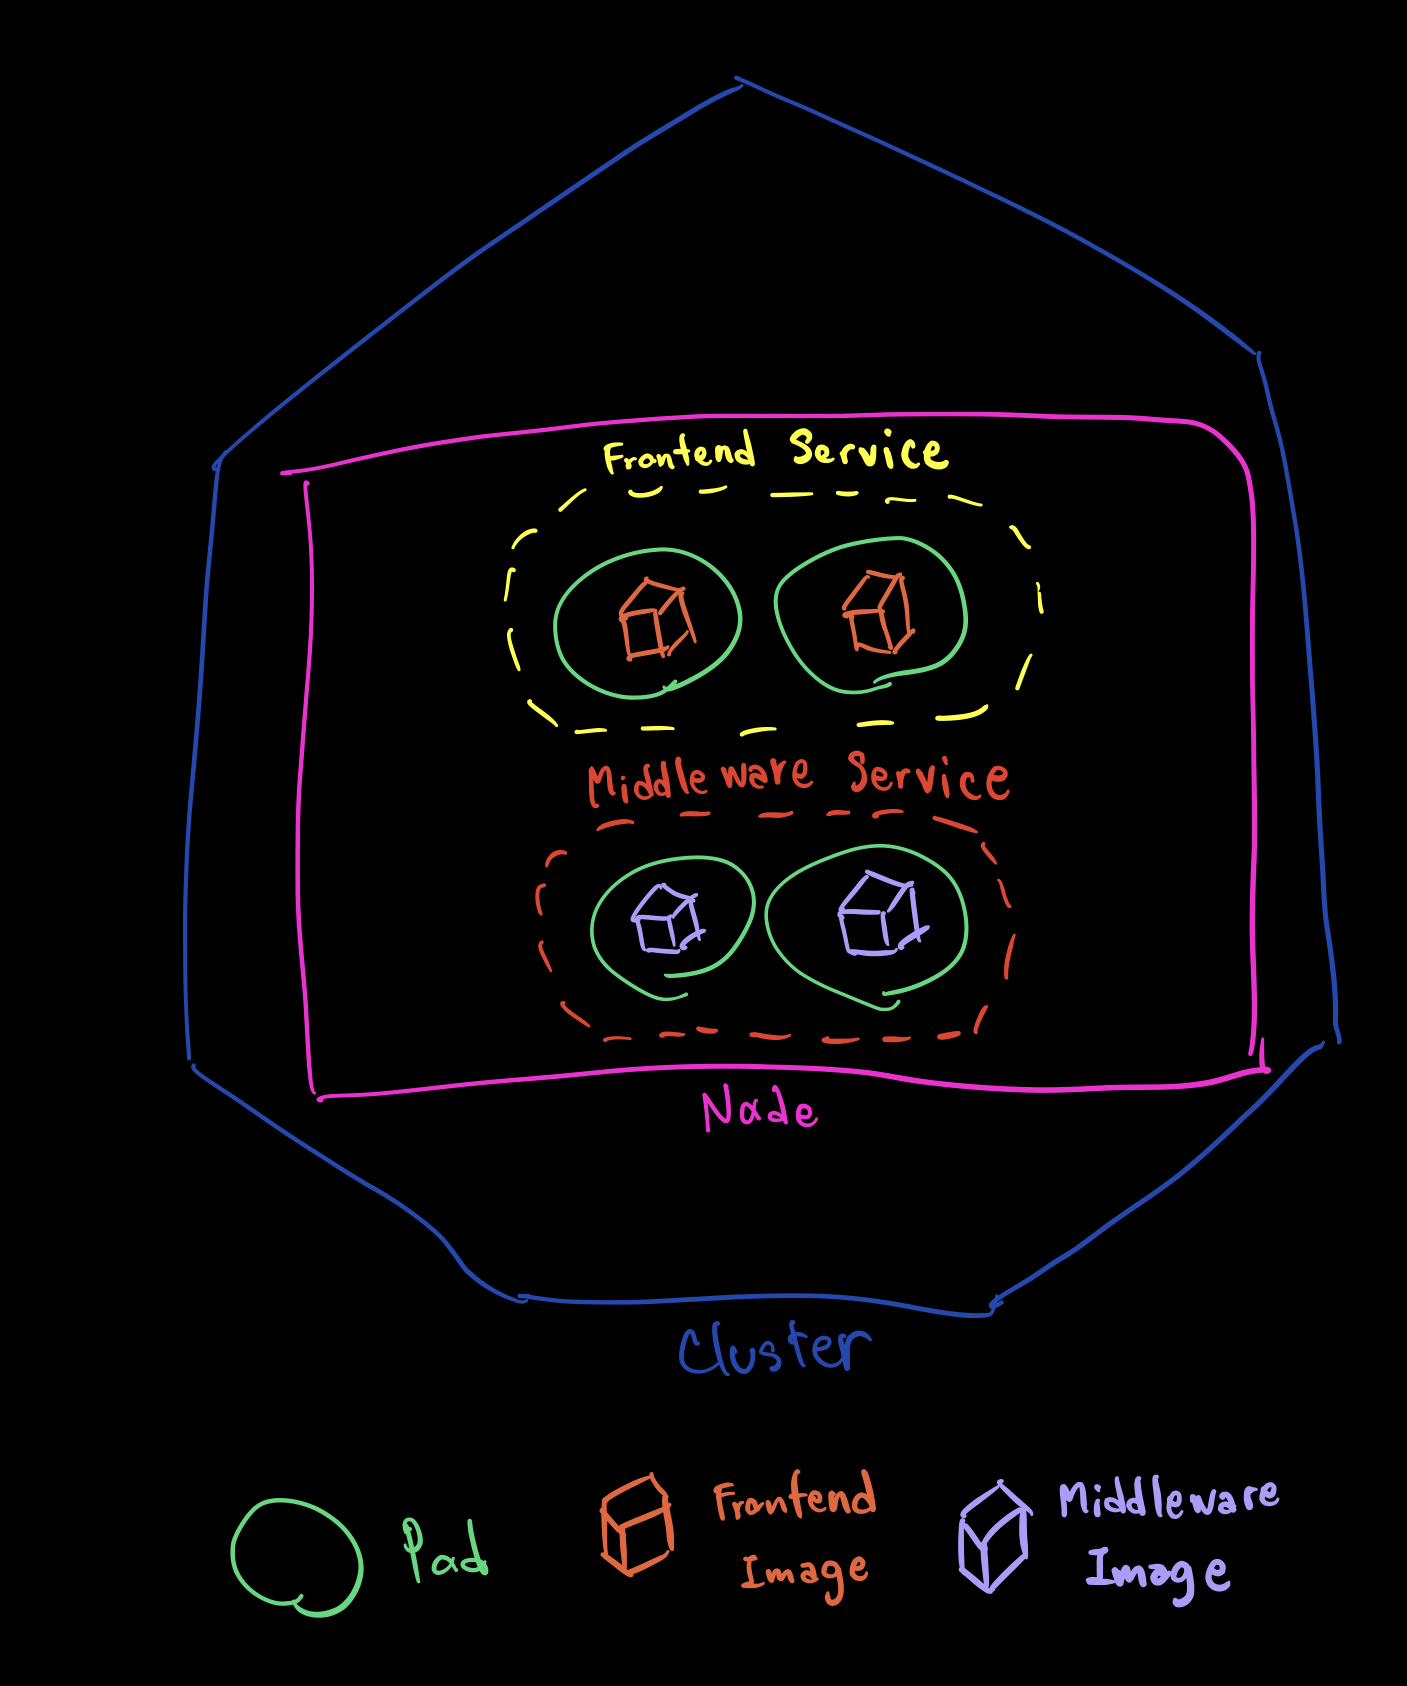 Frontend Service
Middleware Service
Node
Cluster
Pod
Frontend
Image
Middleware
Image